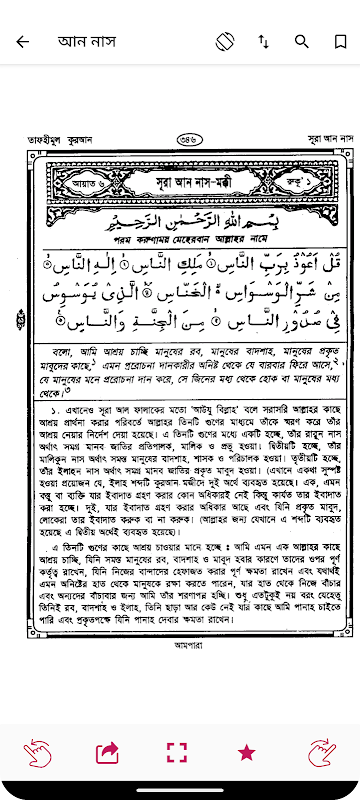 আন নাস
তাফহীমুল কুরআন
৩৪৬
সূরা আন নাস
আয়াত ৬
সূরা আন নাস-মক্কী
রুকূ' ১
بِسْمِ اللهِ الرَّحْمٰنِ الرَّحِيْمِ
পরম করুণাময় মেহেরবান আল্লাহর নামে
قُلْ اَعُوْذُ بِرَبِّ النَّاسِ ۙ مَلِكِ النَّاسِ ۙ اِلٰهِ النَّاسِ ۙ
مِنْ شَرِّ الْوَسْوَاسِ ۙ الْخَنَّاسِ ۙ الَّذِيْ يُوَسْوِسُ
فِيْ صُدُوْرِ النَّاسِ ۙ مِنَ الْجِنَّةِ وَالنَّاسِ ۙ
বলো, আমি আশ্রয় চাচ্ছি মানুষের রব, মানুষের বাদশাহ, মানুষের প্রকৃত
মাবুদের কাছে,১ এমন প্ররোচনা দানকারীর অনিষ্ট থেকে যে বারবার ফিরে আসে,২
যে মানুষের মনে প্ররোচনা দান করে, সে জিনের মধ্য থেকে হোক বা মানুষের মধ্য
থেকে।৩
১. এখানেও সূরা আল ফালাকের মতো 'আউযু বিল্লাহ' বলে সরাসরি আল্লাহর কাছে
আশ্রয় প্রার্থনা করার পরিবর্তে আল্লাহর তিনটি গুণের মাধ্যমে তাঁকে স্মরণ করে তাঁর
আশ্রয় নেয়ার নির্দেশ দেয়া হয়েছে। এ তিনটি গুণের মধ্যে একটি হচ্ছে, তাঁর রাব্বুন নাস
অর্থাৎ সমগ্র মানব জাতির প্রতিপালক, মালিক ও প্রভু হওয়া। দ্বিতীয়টি হচ্ছে, তাঁর
মালিকুন নাস অর্থাৎ সমস্ত মানুষের বাদশাহ, শাসক ও পরিচালক হওয়া। তৃতীয়টি হচ্ছে,
তাঁর ইলাহুন নাস অর্থাৎ সমগ্র মানব জাতির প্রকৃত মাবুদ হওয়া। (এখানে একথা সুস্পষ্ট
হওয়া প্রয়োজন যে, ইলাহ শব্দটি কুরআন মজীদে দুই অর্থে ব্যবহৃত হয়েছে। এক, এমন
বস্তু বা ব্যক্তি যার ইবাদাত গ্রহণ করার কোন অধিকারই নেই কিন্তু কার্যত তার ইবাদাত
করা হচ্ছে। দুই, যার ইবাদাত গ্রহণ করার অধিকার আছে এবং যিনি প্রকৃত মাবুদ,
লোকেরা তার ইবাদাত করুক বা না করুক। (আল্লাহর জন্য যেখানে এ শব্দটি ব্যবহৃত
হয়েছে এ দ্বিতীয় অর্থেই ব্যবহৃত হয়েছে)।
এ তিনটি গুণের কাছে আশ্রয় চাওয়ার মানে হচ্ছে : আমি এমন এক আল্লাহর কাছে
আশ্রয় চাচ্ছি, যিনি সমস্ত মানুষের রব, বাদশাহ ও মাবুদ হবার কারণে তাদের ওপর পূর্ণ
কর্তৃত্ব রাখেন, যিনি নিজের বান্দাদের হেফাজত করার পূর্ণ ক্ষমতা রাখেন এবং যথার্থই
এমন অনিষ্টের হাত থেকে মানুষকে রক্ষা করতে পারেন, যার হাত থেকে নিজে বাঁচার
এবং অন্যদের বাঁচাবার জন্য আমি তাঁর শরণাপন্ন হচ্ছি। শুধু এতটুকুই নয় বরং যেহেতু
তিনিই রব, বাদশাহ ও ইলাহ, তিনি ছাড়া আর কেউ নেই যার কাছে আমি পানাহ চাইতে
পারি এবং প্রকৃতপক্ষে যিনি পানাহ দেবার ক্ষমতা রাখেন।
আমপারা